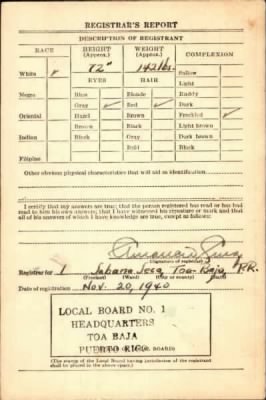 REGISTRAR'S REPORT
DESCRIPTION OF REGISTRANT
RACE HEIGHT (Approx.) WEIGHT (Approx.) COMPLEXION
White ✓ 72" 142 lbs. Sallow
EYES HAIR Light
Negro Blue Blonde Ruddy
Gray ✓ Red ✓ Dark
Oriental Hazel Brown Freckled ✓
Brown Black Light brown
Indian Black Gray Dark brown
Bald Black
Filipino
Other obvious physical characteristics that will aid in identification
I certify that my answers are true; that the person registered has read or has had
read to him his own answers; that I have witnessed his signature or mark and that
all of his answers of which I have knowledge are true, except as follows:
(Signature of registrar)
Registrar for 1 Toa-Baja, P.R.
(Precinct) (Ward) (City or county) (State)
Date of registration Nov. 20, 1940
LOCAL BOARD NO. 1
HEADQUARTERS
TOA BAJA
PUERTO RICO
(The stamp of the Local Board having jurisdiction of the registrant
shall be placed in the above space.)